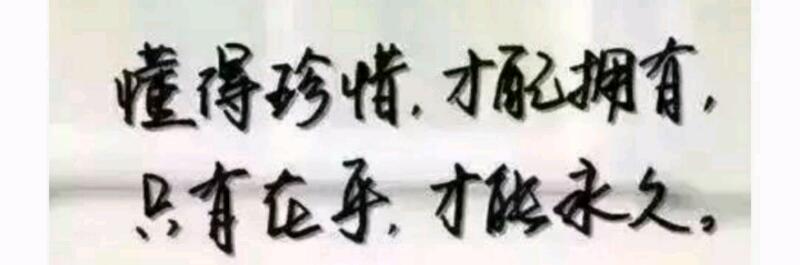 懂得珍惜,才配拥有,
只有在乎,才能永久。